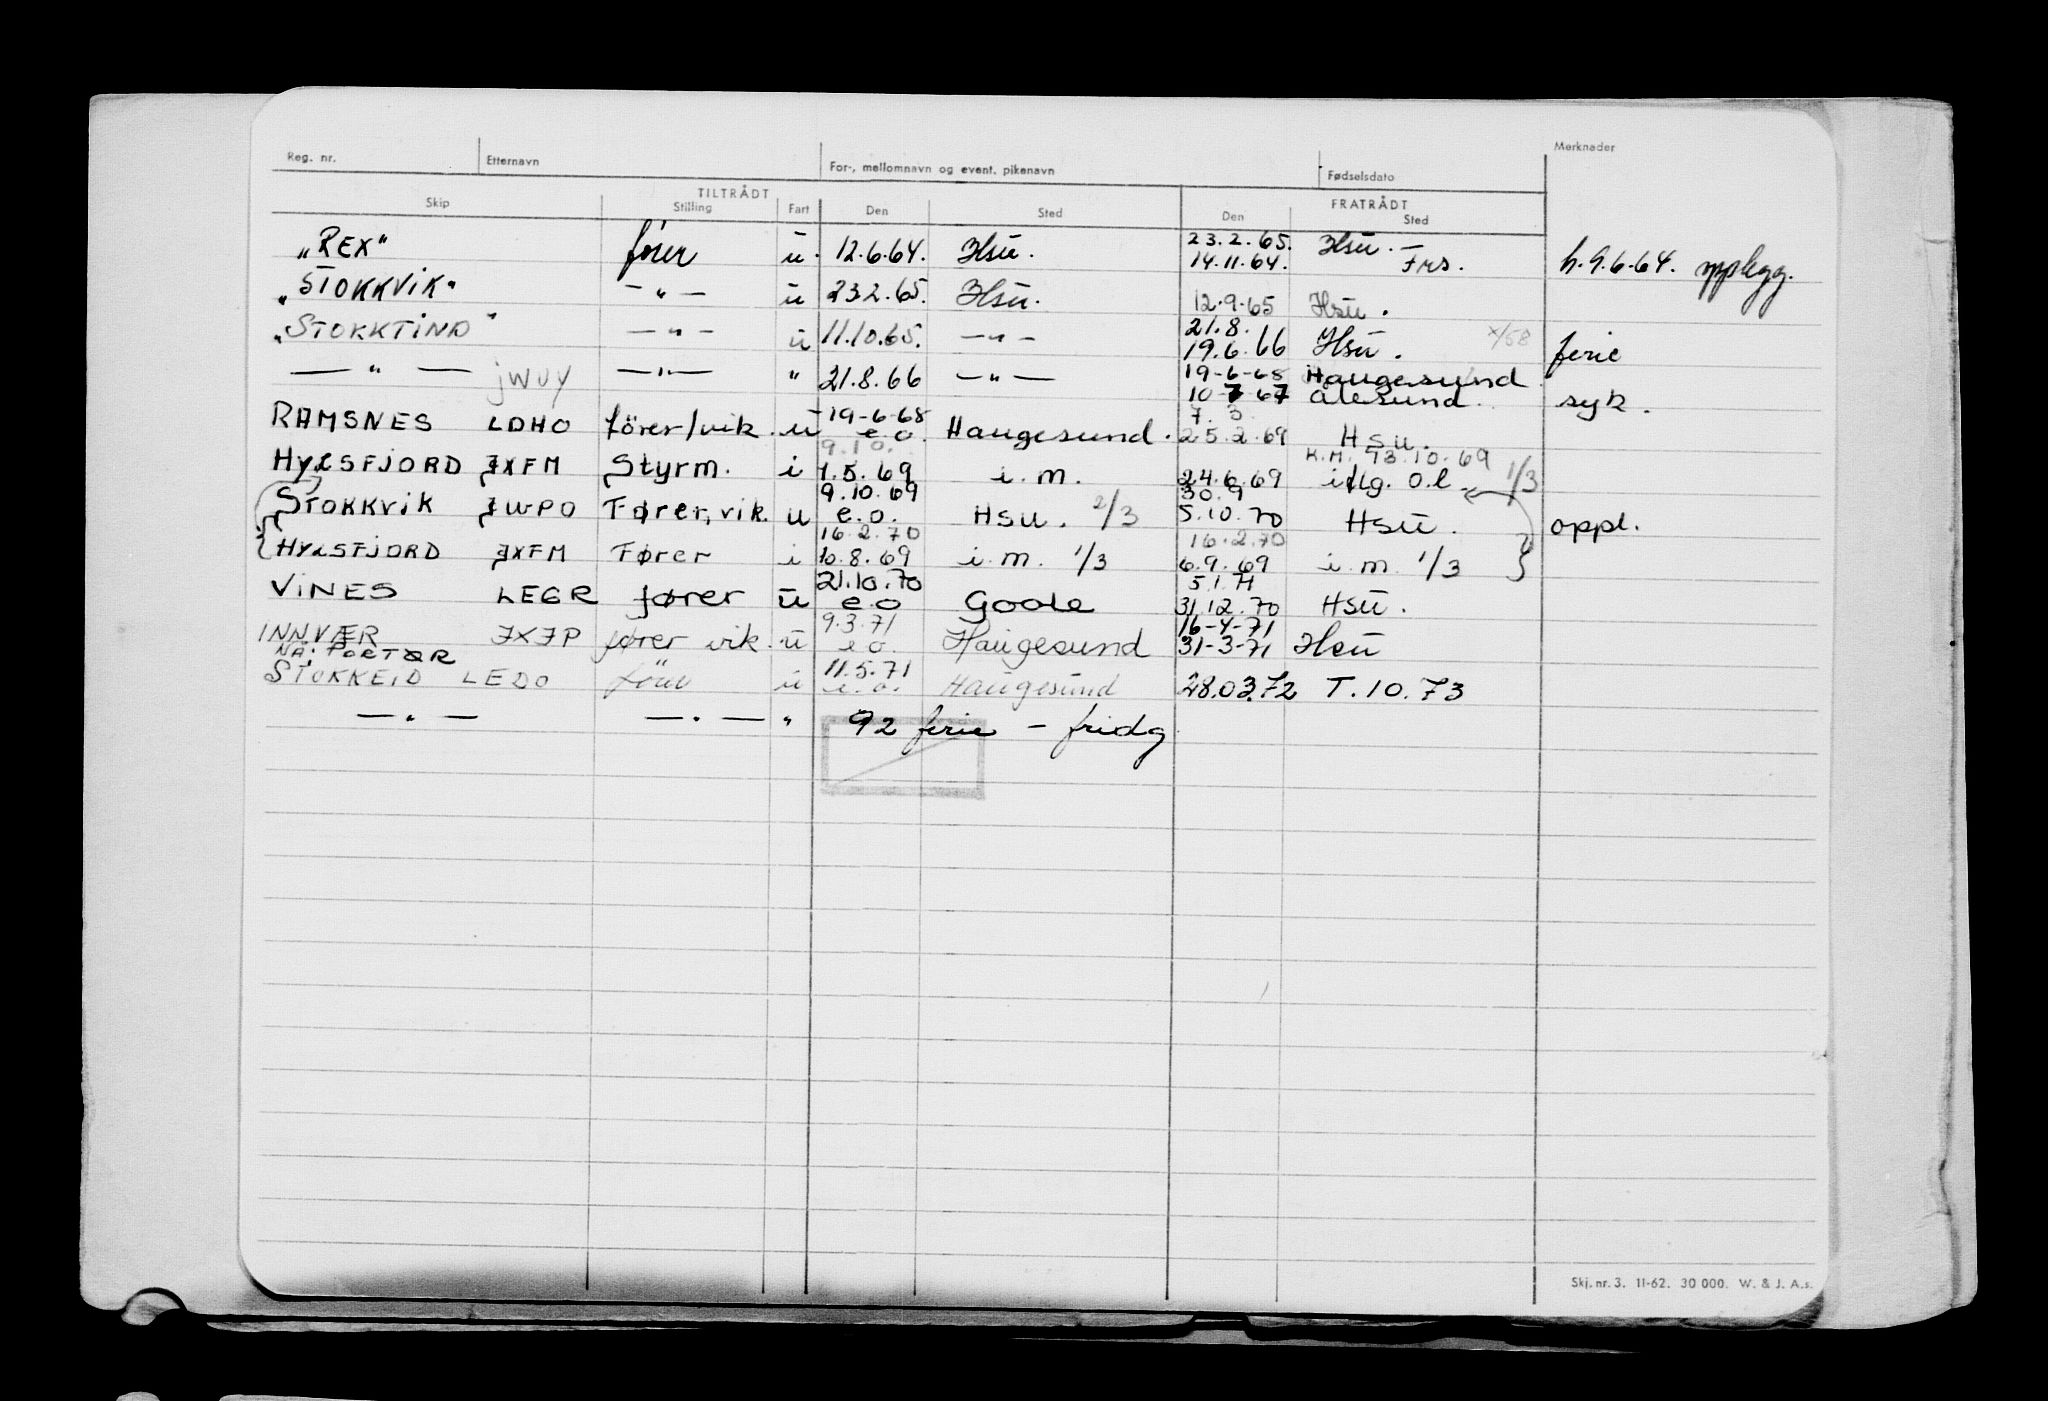 Reg. nr. Etternavn For-, mellomnavn og event. pikenavn Fødselsdato Merknader
TILTRÅDT FRATRÅDT
Skip Stilling Fart Den Sted Den Sted
23.2.65. Hsu. —
„REX“ fører u. 12.6.64. Hsu. 14.11.64. Frs. h. 9.6.64. opplegg.
„STOKKVIK“ — " — u 23.2.65. Hsu. 12.9.65 Hsu.
21.8.
„STOKKTIND“ — " — u 11.10.65. — " — 19.6.66 Hsu. x/58 ferie
19-6-68 Haugesund
— " — JWUY — " — " 21.8.66 — " — 10-7-67 Ålesund. syk.
19-6-68 7. 3
RAMSNES LDHO fører/vik. u e.o. Haugesund. 25.2.69 Hsu.
9.10. K.M. 13.10.69
HYLSFJORD JXFM Styrm. i 1.5.69 i.m. 24.6.69 iflg. o.l. 1/3
9.10.69 30.9
STOKKVIK JWPO Fører, vik. u e.o. Hsu. 2/3 5.10.70 Hsu. oppl.
16.2.70 16.2.70
HYLSFJORD JXFM Fører i 10.8.69 i.m. 1/3 6.9.69 i.m. 1/3
21.10.70 5.1.71
VINES LEGR fører u e.o Goole 31.12.70 Hsu.
9.3.71 16-4-71
INNVÆR JXJP fører vik. u e.o. Haugesund 31-3-71 Hsu
NÅ: PORTØR
11.5.71
STOKKEID LEDO fører u e.o. Haugesund 28.03.72 T.10.73
— " — — " — " 92 ferie — fridg
Skj. nr. 3. 11-62. 30 000. W. & J. A.s.